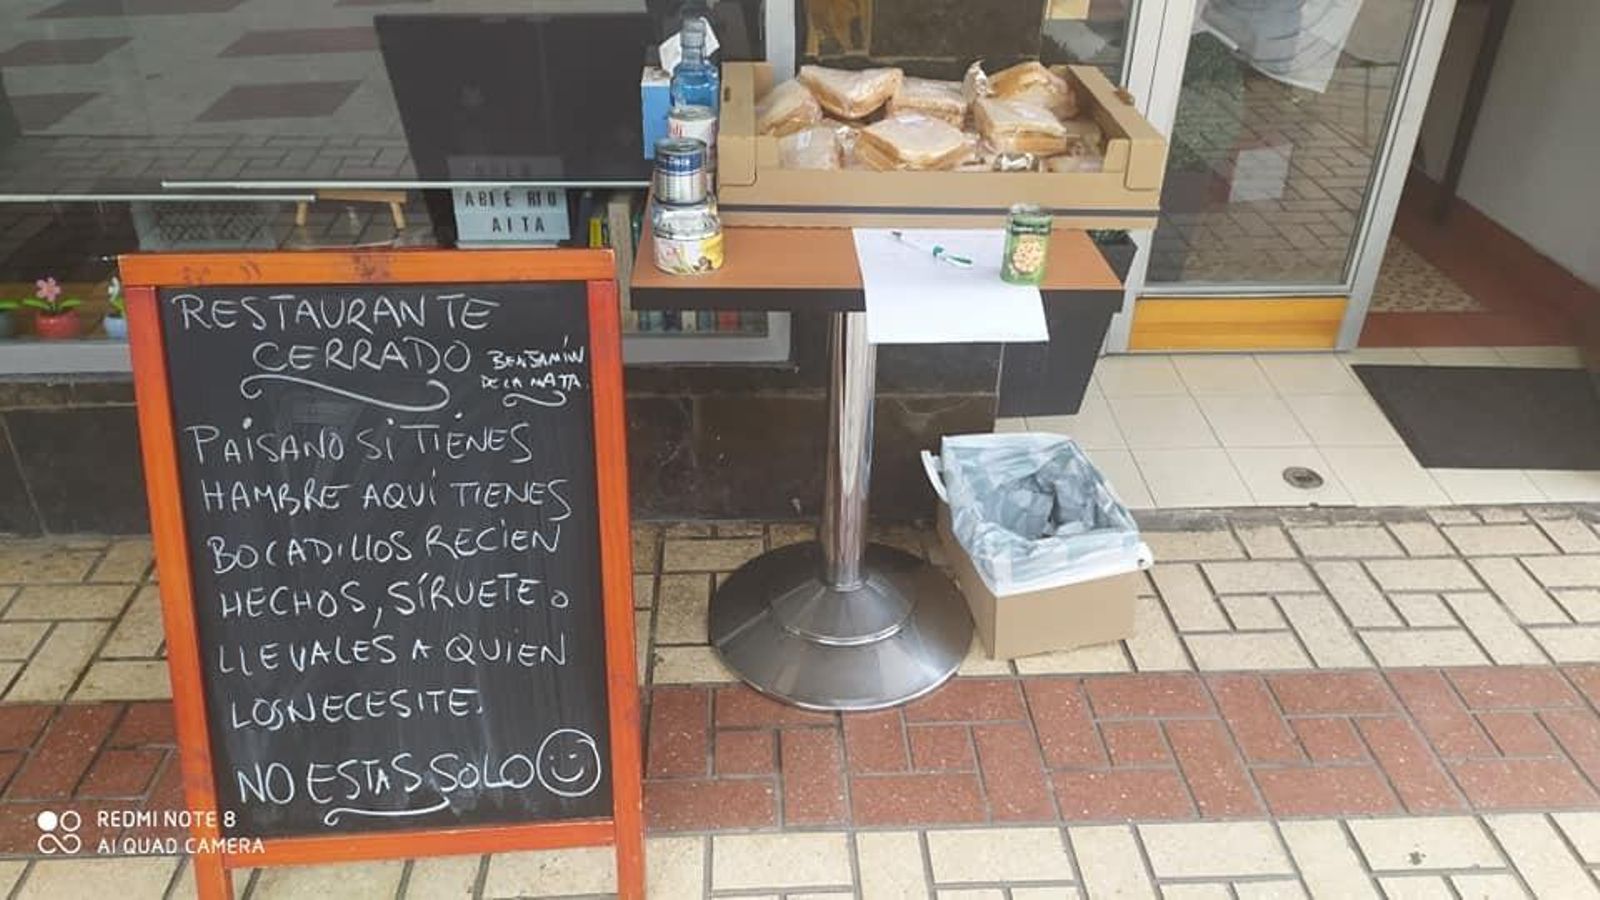 ABIERTO
AITA
RESTAURANTE
CERRADO
BENJAMÍN
DE LA MATA
PAÍSANO SI TIENES
HAMBRE AQUÍ TIENES
BOCADILLOS RECIEN
HECHOS, SÍRVETE O
LLEVALES A QUIEN
LOS NECESITE.
NO ESTAS SOLO
REDMI NOTE 8
AI QUAD CAMERA